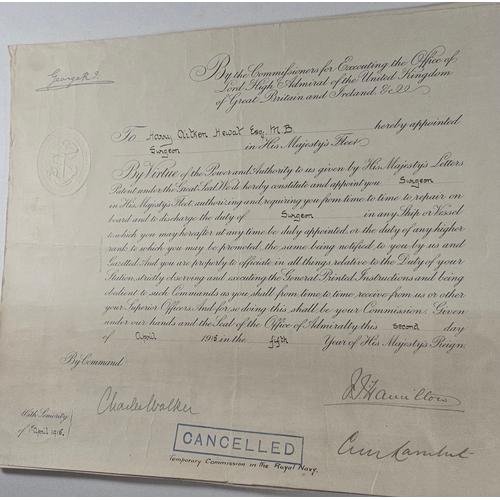 George R.I.
By the Commissioners for Executing the Office of
Lord High Admiral of the United Kingdom
of Great Britain and Ireland &c
To Harry Aitken Hewat Esq. M.B. hereby appointed
Surgeon in His Majesty's Fleet.
By Virtue of the Power and Authority to us given by His Majesty's Letters
Patent under the Great Seal We do hereby constitute and appoint you Surgeon
in His Majesty's Fleet authorizing and requiring you from time to time to repair on
board and to discharge the duty of Surgeon in any Ship or Vessel
to which you may hereafter at any time be duly appointed, or the duty of any higher
rank to which you may be promoted, the same being notified to you by us and
Gazetted. And you are properly to officiate in all things relative to the Duty of your
Station, strictly observing and executing the General Printed Instructions and being
obedient to such Commands as you shall from time to time receive from us or other
your Superior Officers. And for so doing this shall be your Commission. Given
under our hands and the Seal of the Office of Admiralty this second day
of April 1915 in the fifth Year of His Majesty's Reign.
By Command
Charles Walker
With Seniority
of 1 April 1915.
CANCELLED
Temporary Commission in the Royal Navy.